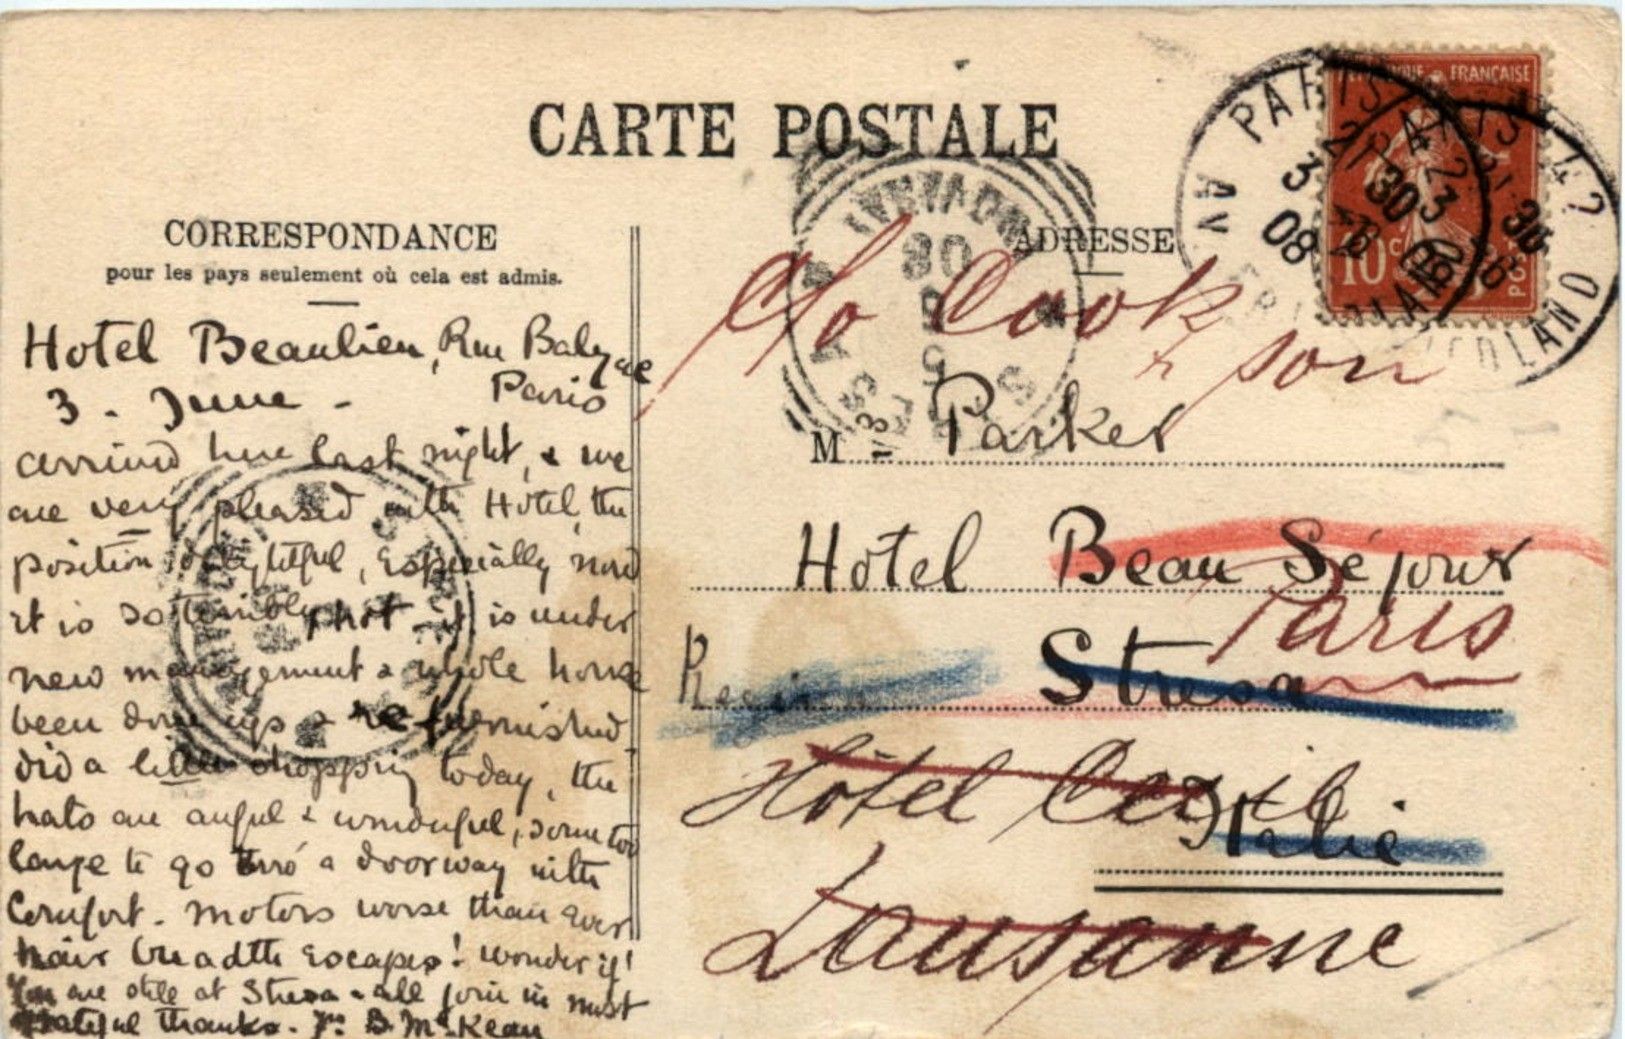 CARTE POSTALE
CORRESPONDANCE
pour les pays seulement où cela est admis.
Hotel Beaulieu, Rue Balzac
Paris
3. June -
arrived here last night, & we
are very pleased with Hotel, the
position delightful, Especially now
it is so terribly hot - it is under
new management & whole house
been done up & refurnished.
did a little shopping today, the
hats are awful & wonderful, some too
large to go thro' a doorway with
Comfort. Motors worse than ever
hair breadth Escapes! wonder if
You are still at Stresa - all join in most
grateful thanks. Yrs B. McKean
ADRESSE
c/o Cook
& son
M Parker
Hotel Beau Séjour
Paris
Stresa
Hôtel Cecil
Italie.
Lausanne
RÉPUBLIQUE FRANÇAISE
10 c
POSTES
PARIS
21 30
3
08